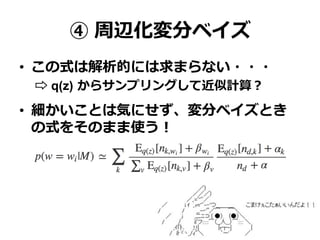 ④ 周辺化変分ベイズ
• この式は解析的には求まらない・・・
⇨ q(z) からサンプリングして近似計算？
• 細かいことは気にせず、変分ベイズとき
の式をそのまま使う！
p(w = wᵢ|M) ≃ ∑ₖ (E_q(z)[n_k,wᵢ] + β_wᵢ) / (∑ᵥ E_q(z)[n_k,v] + βᵥ) (E_q(z)[n_d,k] + αₖ) / (n_d + α)
こまけぇこたぁいいんだよ！！